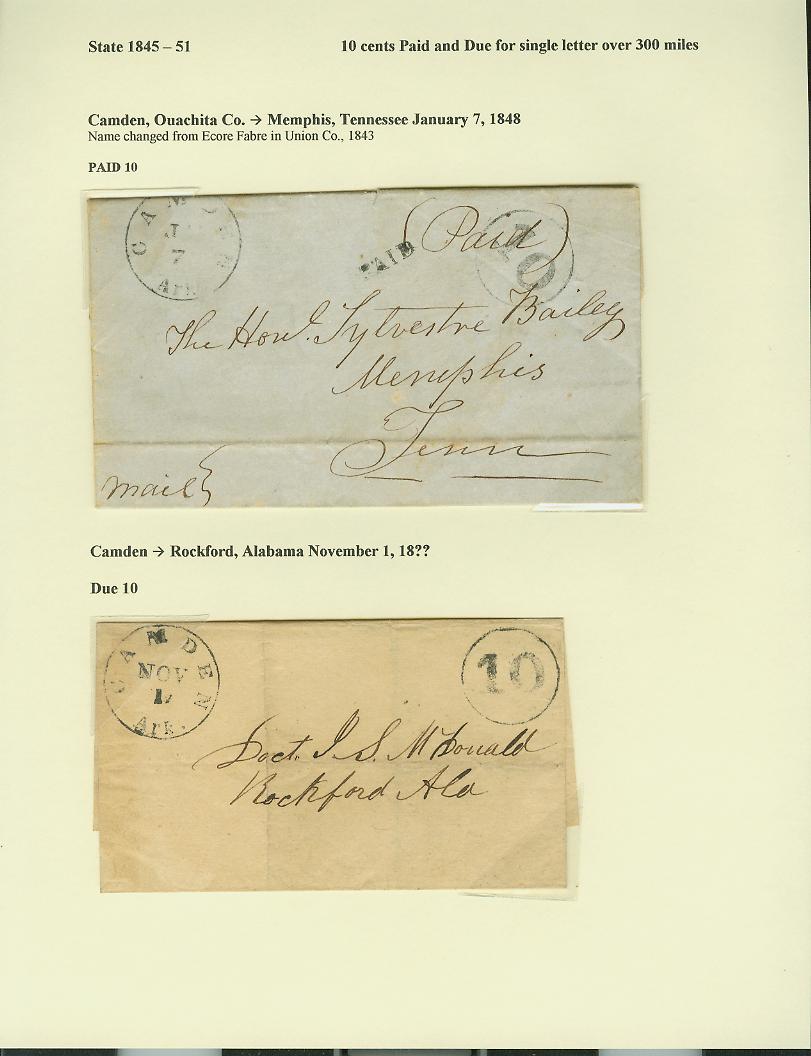 State 1845 – 51
10 cents Paid and Due for single letter over 300 miles
Camden, Ouachita Co. → Memphis, Tennessee January 7, 1848
Name changed from Ecore Fabre in Union Co., 1843
PAID 10
CAMDEN
7
Ark.
PAID
(Paid)
10
The Hon. Sylvestre Bailey
Memphis
Tenn
mail
Camden → Rockford, Alabama November 1, 18??
Due 10
CAMDEN
NOV
1
Ark.
10
Doct. J. S. McDonald
Rockford Ala